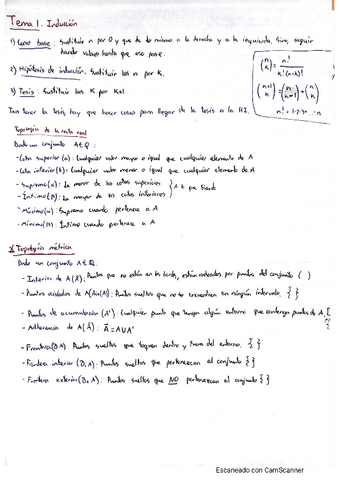 Tema 1. Inducción
1) Caso base: Sustituir n por 0 y que de lo mismo a la derecha y a la izquierda, Sino, seguir
tando valores hasta que eso pase.
2) Hipótesis de inducción: Sustituir las n por K.
3) Tesis: Sustituir las K por K+1
(n K) = n! / K!(n-k)!
(n+1 K) = (n K-1) + (n K)
n! = 1·2·3·...·n
Tras tener la tesis, hay que hacer cosas para llegar de la tesis a la HI.
Topología de la recta real
Dado un conjunto A∈Q:
- Cota superior (a): Cualquier valor mayor o igual que cualquier elemento de A
- Cota inferior (b): Cualquier valor menor o igual que cualquier elemento de A
- Supremo (x): La menor de las cotas superiores
- Ínfimo (β): La mayor de las cotas inferiores
- Máximo (M): Supremo cuando pertenece a A
- Mínimo (m): Ínfimo cuando pertenece a A
Topología métrica
Dado un conjunto A∈Q:
- Interior de A (Å): Puntos que no están en los bordes, están rodeados por puntos del conjunto ( )
- Puntos aislados de A (Ais(A)): Puntos sueltos que no se encuentran en ningún intervalo. { }
- Puntos de acumulación (A'): Cualquier punto que tenga algún entorno que contenga puntos de A. [ ]
- Adherencia de A (Ā): Ā = A∪A'
- Frontera (∂A): Puntos sueltos que toquen dentro y fuera del entorno. { }
- Frontera interior (∂iA): Puntos sueltos que pertenezcan al conjunto { }
- Frontera exterior (∂eA): Puntos sueltos que NO pertenezcan al conjunto { }
Escaneado con CamScanner